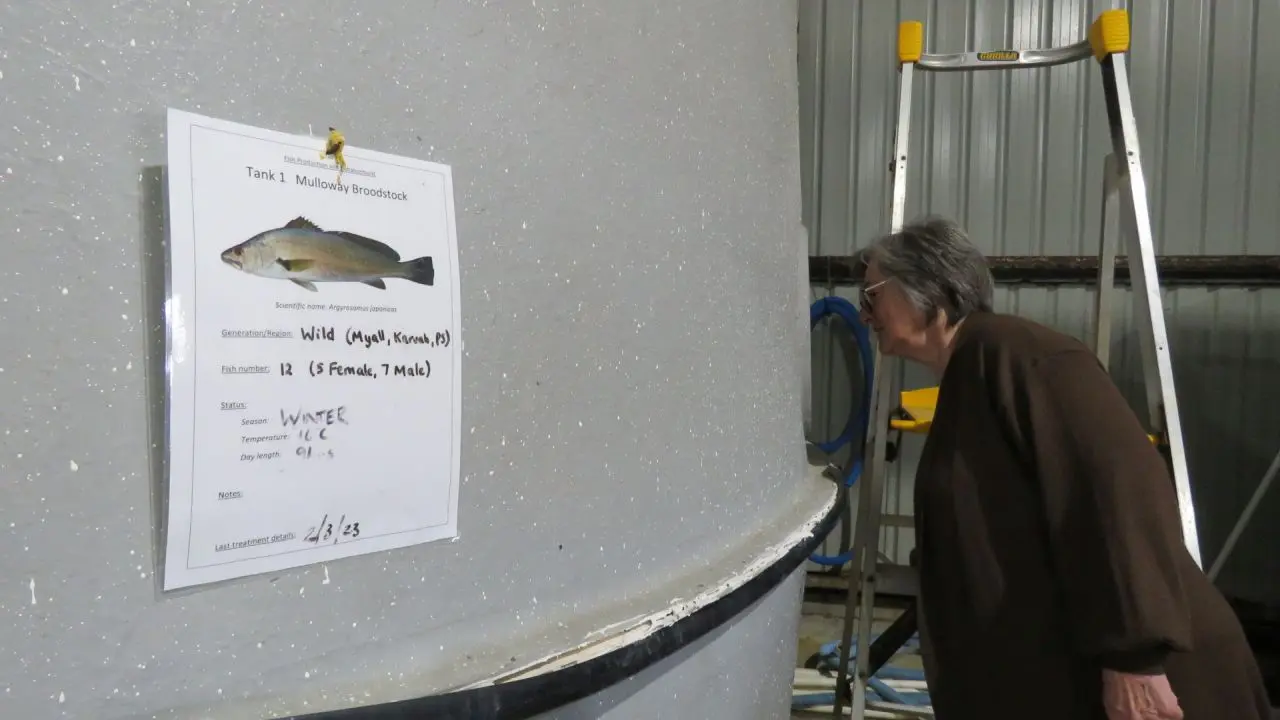 Tank 1 Mulloway Broodstock
Scientific name: Argyrosomus japonicus
Generation/Region: Wild (Myall, Karuah, PS)
Fish number: 12 (5 Female, 7 Male)
Status:
Season: WINTER
Temperature: 16 C
Day length:
Notes:
Last treatment details: 2/3/23